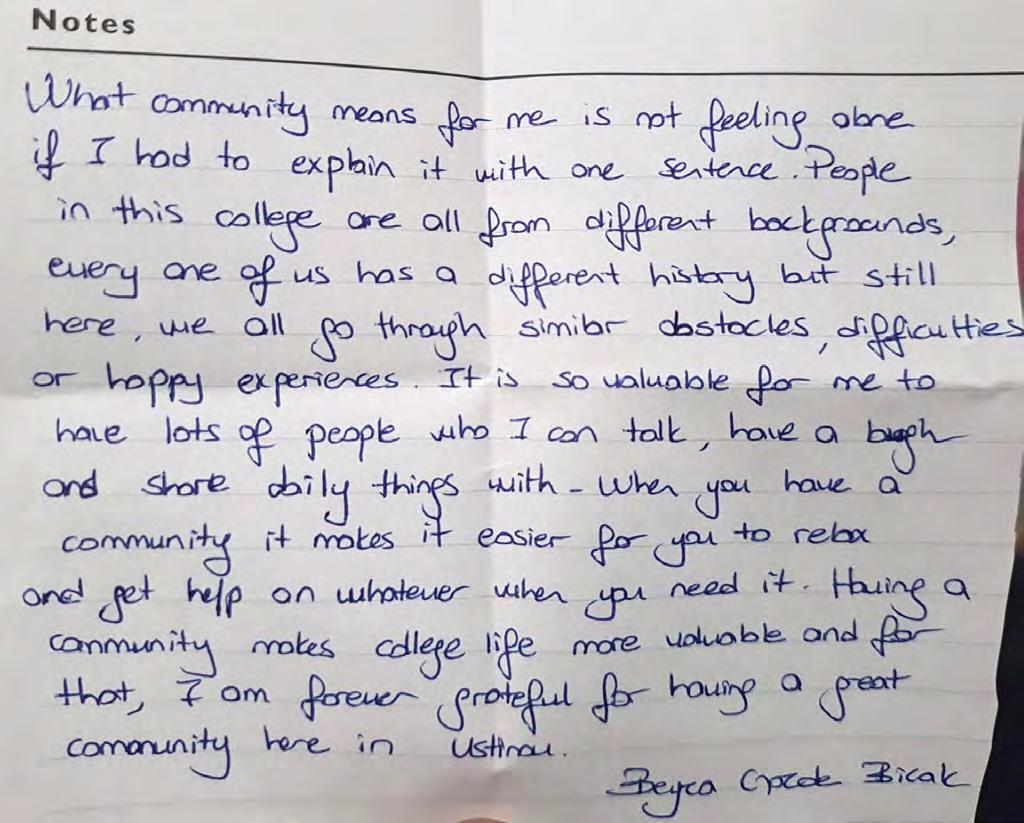 Notes
What community means for me is not feeling alone
if I had to explain it with one sentence. People
in this college are all from different backgrounds,
every one of us has a different history but still
here, we all go through similar obstacles, difficulties
or happy experiences. It is so valuable for me to
have lots of people who I can talk, have a laugh
and share daily things with - When you have a
community it makes it easier for you to relax
and get help on whatever when you need it. Having a
community makes college life more valuable and for
that, I am forever grateful for having a great
community here in Ustinov.
Beyca Bicak